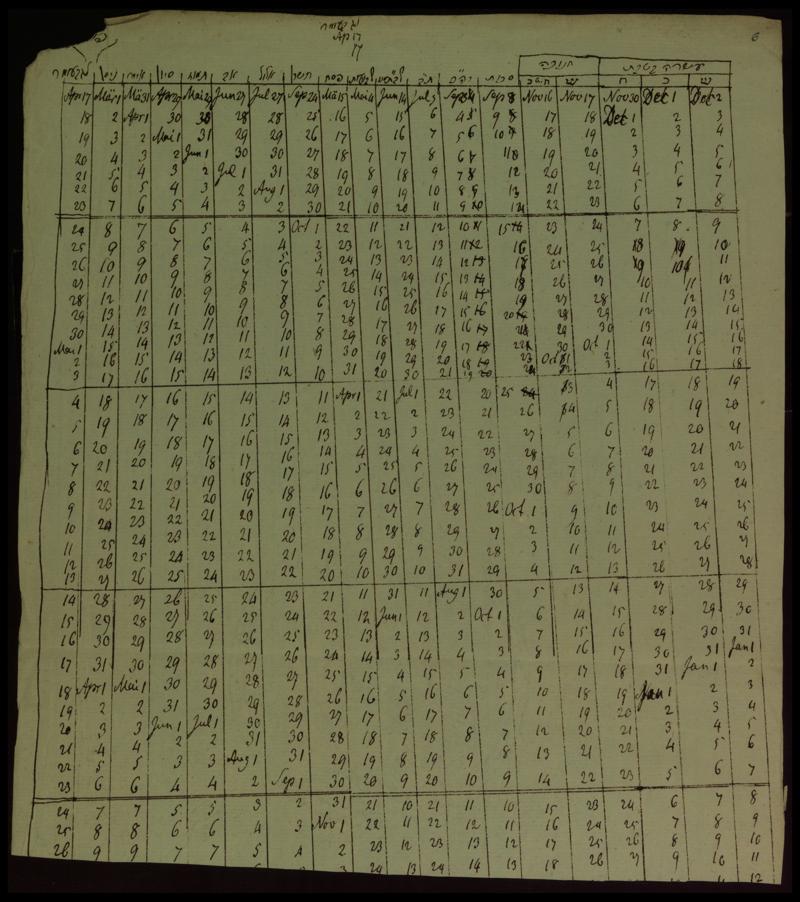 Apr 17
17
6
חנוכה עשרה בטבת
ניסן סיון תמוז אב אלול תשרי פסח סכות ש ח ש
Apr 17 Mä 31 Jun 27 Jul 27 Sep 24 Mä 15 Mai 4 Jun 14 Jul 5 Sep 8 Nov 16 Nov 17 Nov 30 Dec 1 Dec 2
18 2 Apr 1 30 28 28 25 16 5 15 6 17 18 Dec 1 2 3
19 3 2 Mai 1 31 29 29 26 17 6 16 7 18 19 2 3 4
20 4 3 2 Jun 1 30 30 27 18 7 17 8 19 20 3 4 5
21 5 4 3 2 Jul 1 31 28 19 8 18 9 12 20 21 4 5 6
22 6 5 4 3 2 Aug 1 29 20 9 19 10 13 21 22 5 6 7
23 7 6 5 4 3 2 30 21 10 20 11 22 23 6 7 8
24 8 7 6 5 4 3 Oct 1 22 11 21 12 23 24 7 8 9
25 9 8 7 6 5 4 2 23 12 22 13 16 24 25 10
26 10 9 8 7 6 5 3 24 13 23 14 25 26 11
27 11 10 9 8 7 6 4 25 14 24 15 18 26 27 10 11 12
28 12 11 10 9 8 7 5 26 15 25 16 19 27 28 11 12 13
29 13 12 11 10 9 8 6 27 16 26 17 28 29 12 13 14
30 14 13 12 11 10 9 7 28 17 27 18 29 30 13 14 15
Mai 1 15 14 13 12 11 10 8 29 18 28 19 30 Oct 1 14 15 16
2 16 15 14 13 12 11 9 30 19 29 20 23 2 15 16 17
3 17 16 15 14 13 12 10 31 20 30 21 3 16 17 18
4 18 17 16 15 14 13 11 Apr 1 21 Jul 1 22 20 25 4 17 18 19
5 19 18 17 16 15 14 12 2 22 2 23 21 26 5 18 19 20
6 20 19 18 17 16 15 13 3 23 3 24 22 27 5 6 19 20 21
7 21 20 19 18 17 16 14 4 24 4 25 23 28 6 7 20 21 22
8 22 21 20 19 18 17 15 5 25 5 26 24 29 7 8 21 22 23
9 23 22 21 20 19 18 16 6 26 6 27 25 30 8 9 22 23 24
10 24 23 22 21 20 19 17 7 27 7 28 26 Oct 1 9 10 23 24 25
11 25 24 23 22 21 20 18 8 28 8 29 27 2 10 11 24 25 26
12 26 25 24 23 22 21 19 9 29 9 30 28 3 11 12 25 26 27
13 27 26 25 24 23 22 20 10 30 10 31 29 4 12 13 26 27 28
14 28 27 26 25 24 23 21 11 31 11 Aug 1 30 5 13 14 27 28 29
15 29 28 27 26 25 24 22 12 Jun 1 12 2 Oct 1 6 14 15 28 29 30
16 30 29 28 27 26 25 23 13 2 13 3 2 7 15 16 29 30 31
17 31 30 29 28 27 26 24 14 3 14 4 3 8 16 17 30 31 Jan 1
18 Apr 1 Mai 1 30 29 28 27 25 15 4 15 5 4 9 17 18 31 Jan 1 2
19 2 2 31 30 29 28 26 16 5 16 6 5 10 18 19 Jan 1 2 3
20 3 3 Jun 1 Jul 1 30 29 27 17 6 17 7 6 11 19 20 2 3 4
21 4 4 2 2 31 30 28 18 7 18 8 7 12 20 21 3 4 5
22 5 5 3 3 Aug 1 31 29 19 8 19 9 8 13 21 22 4 5 6
23 6 6 4 4 2 Sep 1 30 20 9 20 10 9 14 22 23 5 6 7
24 7 7 5 5 3 2 31 21 10 21 11 10 15 23 24 6 7 8
25 8 8 6 6 4 3 Nov 1 22 11 22 12 11 16 24 25 7 8 9
26 9 9 7 7 5 4 2 23 12 23 13 12 17 25 26 8 9 10
3 24 13 24 14 13 18 26 27 9 10 11
12